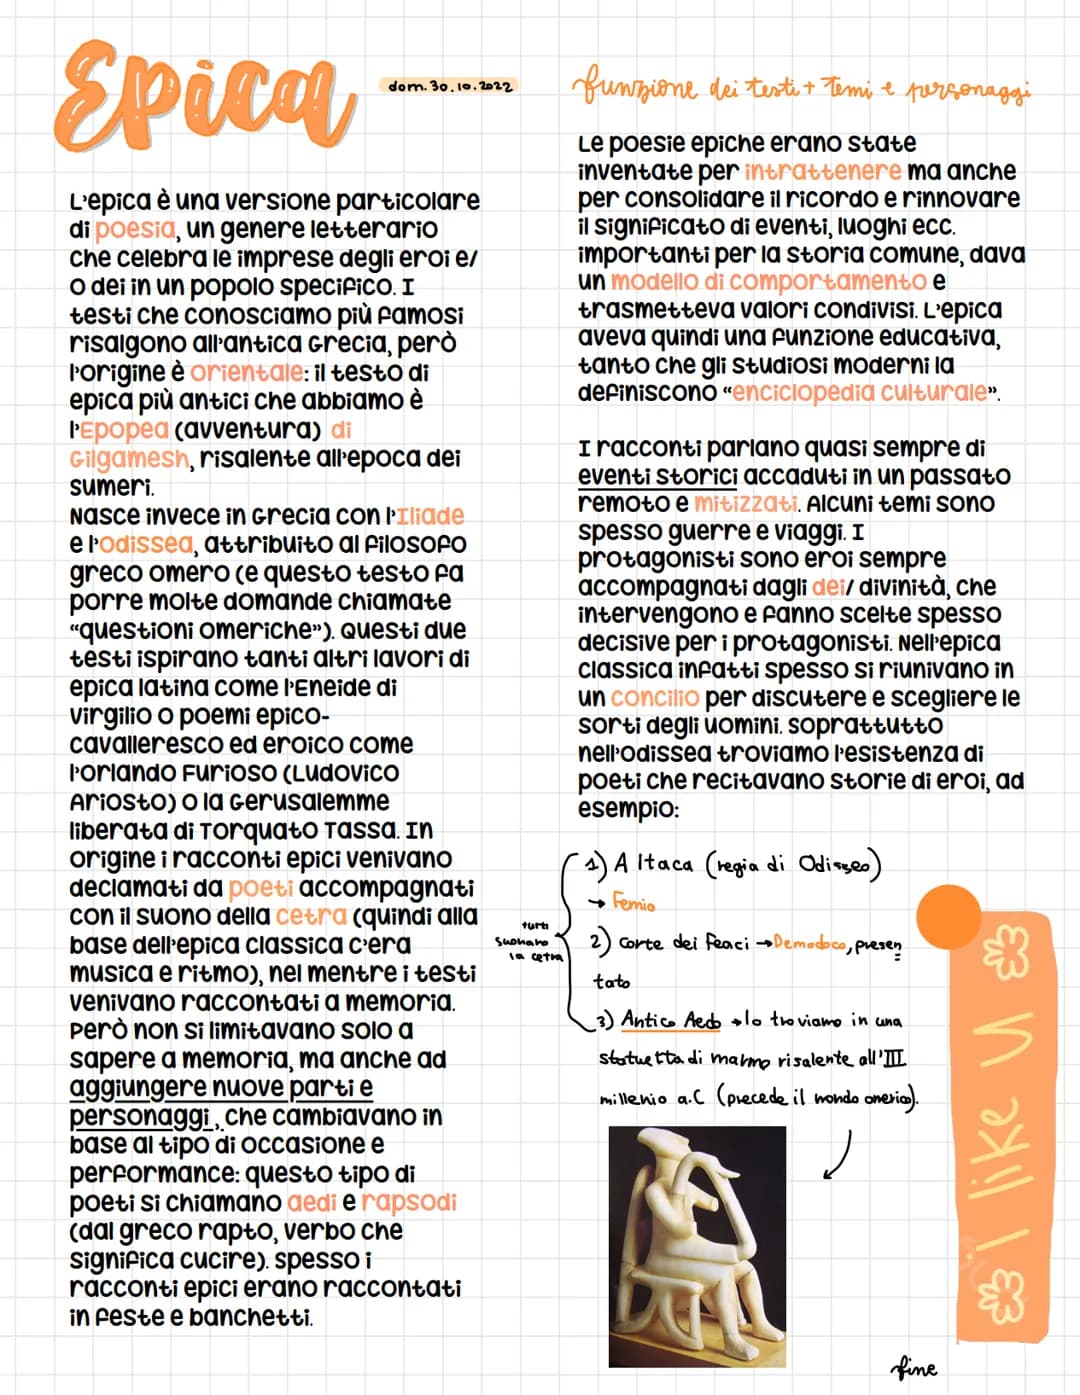 Epica
dom.30.10.2022
L'epica è una versione particolare
di poesia, un genere letterario
che celebra le imprese degli eroi e/
o dei in un popolo specifico. I
testi che conosciamo più famosi
risalgono all'antica Grecia, però
l'origine è orientale: il testo di
epica più antici che abbiamo è
l'Epopea (avventura) di
Gilgamesh, risalente all'epoca dei
sumeri.
Nasce invece in Grecia con l'Iliade
e l'odissea, attribuito al filosofo
greco omero (e questo testo fa
porre molte domande chiamate
“questioni omeriche”). Questi due
testi ispirano tanti altri lavori di
epica latina come l'Eneide di
virgilio o poemi epico-
cavalleresco ed eroico come
l'orlando Furioso (Ludovico
Ariosto) o la Gerusalemme
liberata di Torquato Tassa. In
origine i racconti epici venivano
declamati da poeti accompagnati
con il suono della cetra (quindi alla
base dell'epica classica c'era
musica e ritmo), nel mentre i testi
venivano raccontati a memoria.
però non si limitavano solo a
sapere a memoria, ma anche ad
aggiungere nuove parti e
personaggi, che cambiavano in
base al tipo di occasione e
performance: questo tipo di
poeti si chiamano aedi e rapsodi
(dal greco rapto, verbo che
significa cucire). spesso i
racconti epici erano raccontati
in feste e banchetti.
funzione dei testi + temi e personaggi
Le poesie epiche erano state
inventate per intrattenere ma anche
per consolidare il ricordo e rinnovare
il significato di eventi, luoghi ecc.
importanti per la storia comune, dava
un modello di comportamento e
trasmetteva valori condivisi. L'epica
aveva quindi una funzione educativa,
tanto che gli studiosi moderni la
definiscono “enciclopedia culturale”.
I racconti parlano quasi sempre di
eventi storici accaduti in un passato
remoto e mitizzati. Alcuni temi sono
spesso guerre e viaggi. I
protagonisti sono eroi sempre
accompagnati dagli dei/ divinità, che
intervengono e fanno scelte spesso
decisive per i protagonisti. Nell'epica
classica infatti spesso si riunivano in
un concilio per discutere e scegliere le
sorti degli uomini. soprattutto
nell'odissea troviamo l'esistenza di
poeti che recitavano storie di eroi, ad
esempio:
tutti
suonano
la cetra
1) A Itaca (regia di Odisseo)
→ Femio
2) Corte dei Feaci → Demodoco, presen
tato
3) Antico Aedo → lo troviamo in una
statuetta di marmo risalente all'III
millenio a.C (precede il mondo omerico).
I like u
fine